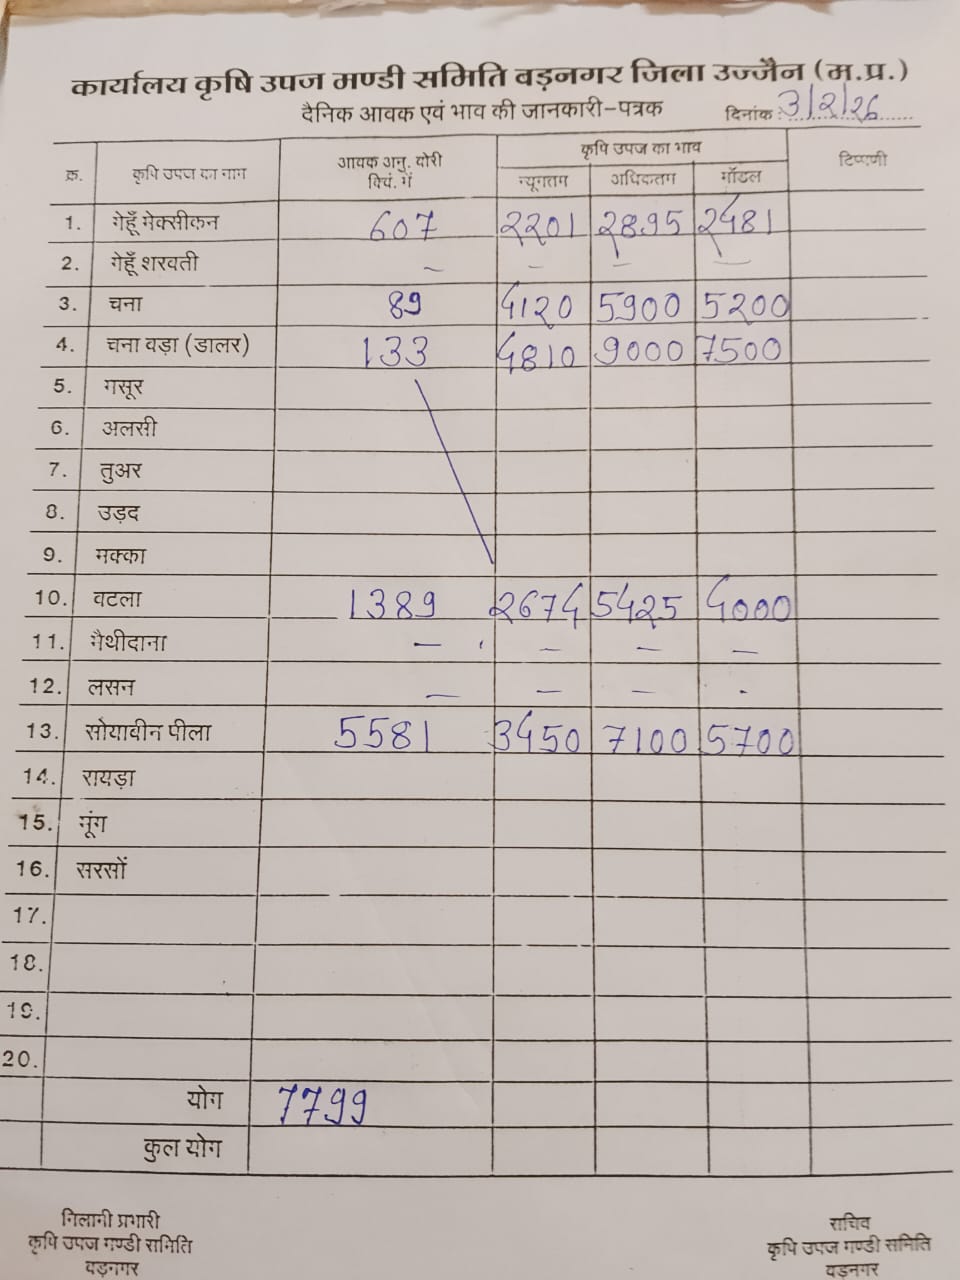 कार्यालय कृषि उपज मण्डी समिति वड़नगर जिला उज्जैन (म.प्र.)
दैनिक आवक एवं भाव की जानकारी-पत्रक दिनांक :3/2/26
क्र. कृषि उपज का नाम आवक अनु. वोरी क्विं. में कृषि उपज का भाव टिप्पणी
न्यूनतम अधिकतम मॉडल
1. गेहूँ मेक्सीकन 607 2201 2895 2481
2. गेहूँ शरवती – – – –
3. चना 89 4120 5900 5200
4. चना वड़ा (डालर) 133 4810 9000 7500
5. मसूर
6. अलसी
7. तुअर
8. उड़द
9. मक्का
10. वटला 1389 2674 5425 4000
11. मैथीदाना – – – –
12. लसन – – – -
13. सोयावीन पीला 5581 3450 7100 5700
14. रायड़ा
15. मूंग
16. सरसों
17.
18.
19.
20.
योग 7799
कुल योग
निलामी प्रभारी सचिव
कृषि उपज मण्डी समिति कृषि उपज मण्डी समिति
वड़नगर वड़नगर